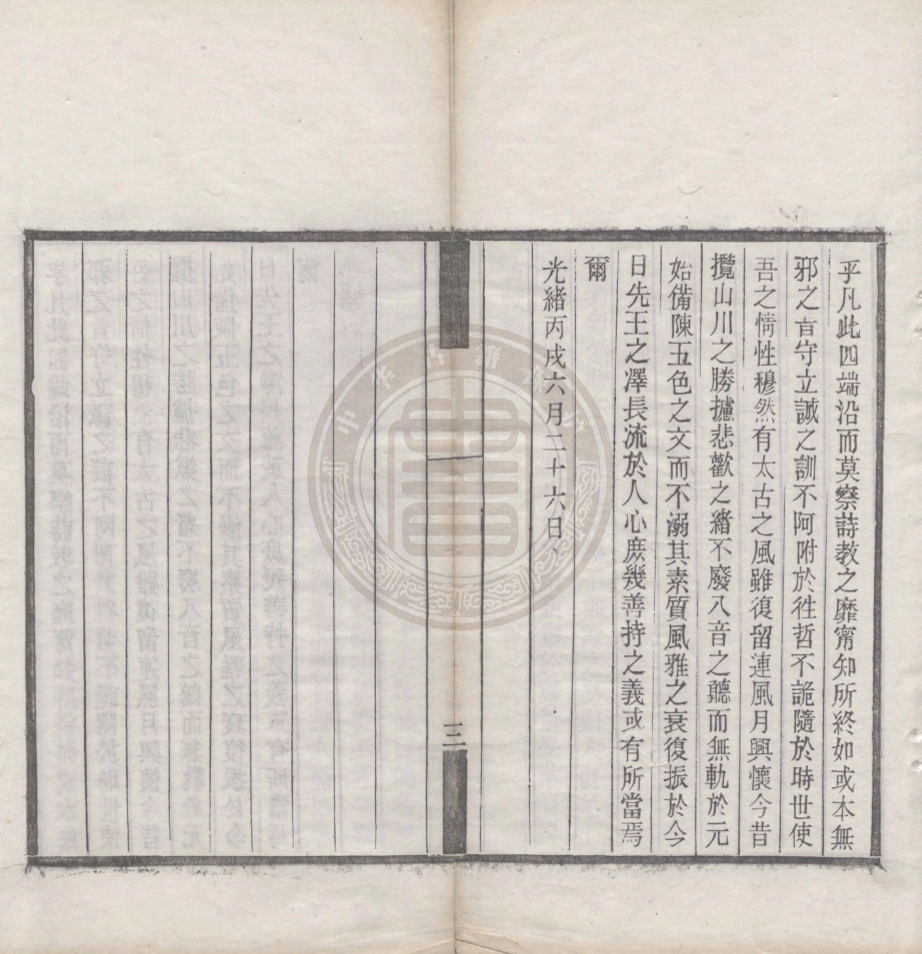 乎凡此四端沿而莫察詩教之靡甯知所終如或本無
邪之㫖守立誠之訓不阿附於徃哲不詭隨於時世使
吾之情性穆然有太古之風雖復留連風月興懷今昔
攬山川之勝攄悲歡之緒不廢八音之聽而無軌於元
始備陳五色之文而不溺其素質風雅之衰復振於今
日先王之澤長流於人心庶幾善持之義或有所當焉
爾
光緒丙戌六月二十六日
三